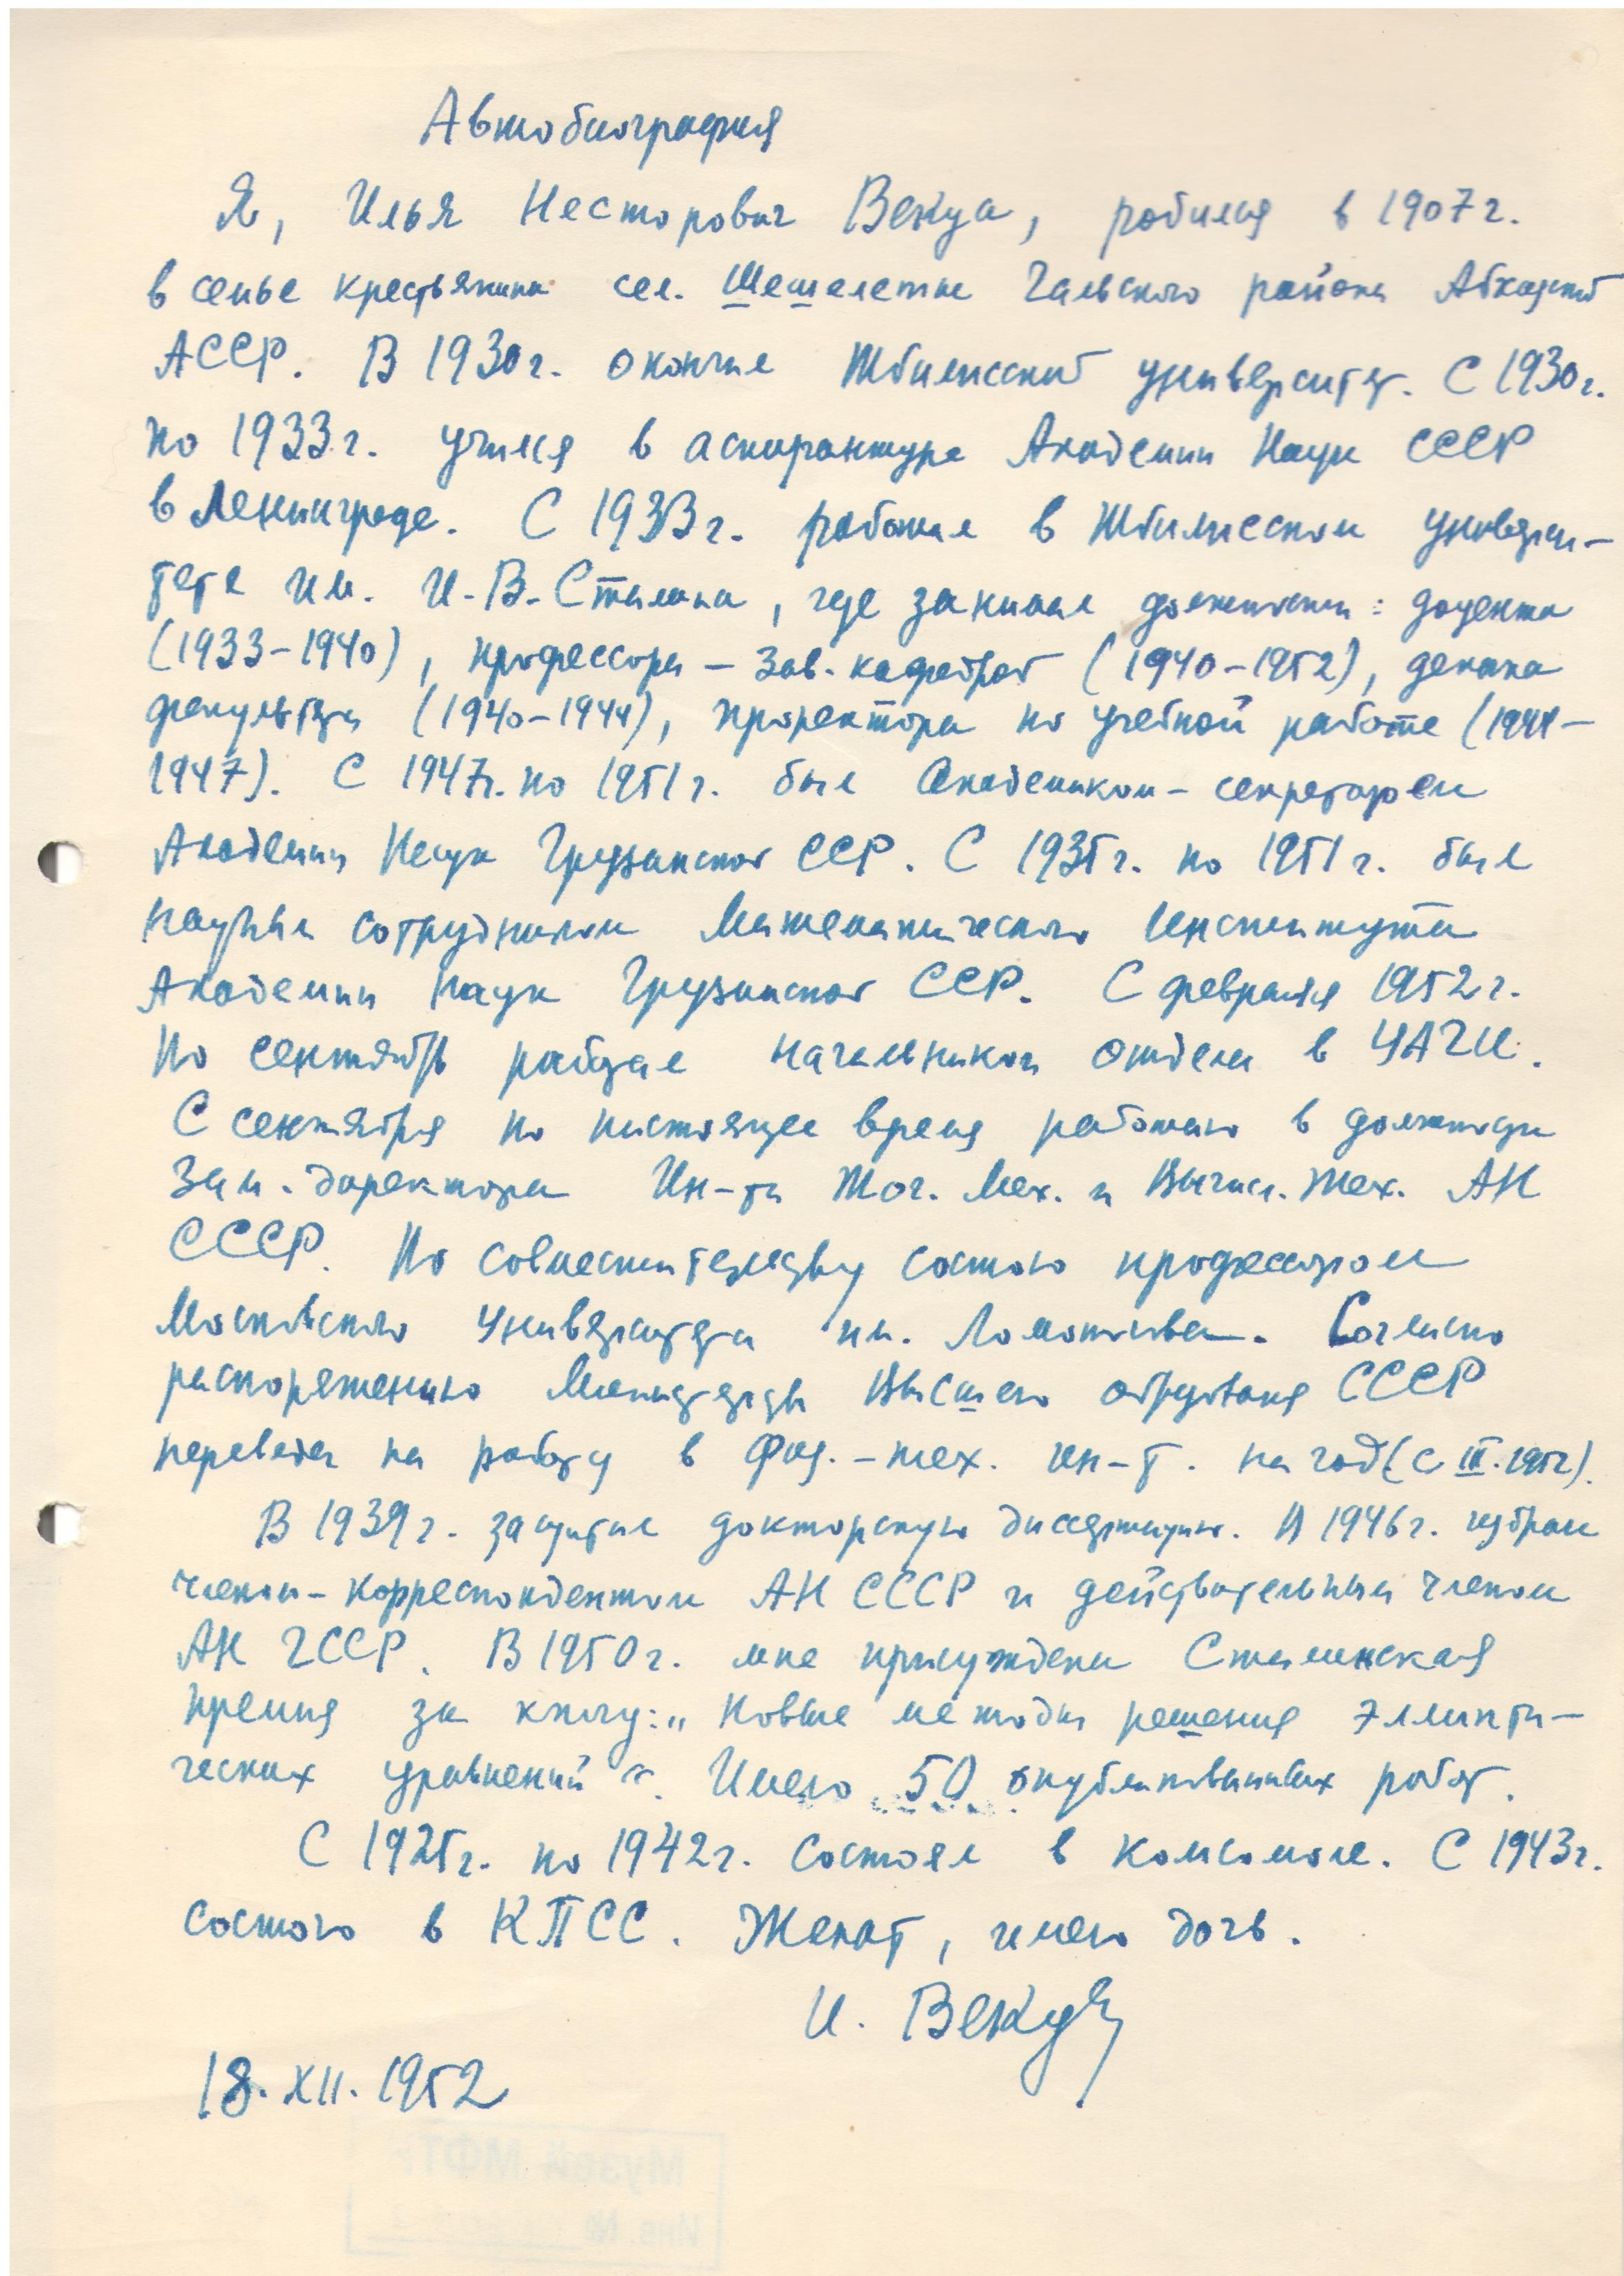 Автобиография
Я, Илья Несторович Векуа, родился в 1907 г.
в семье крестьянина сел. Шешелеты Гальского района Абхазской
АССР. В 1930 г. окончил Тбилисский университет. С 1930 г.
по 1933 г. учился в аспирантуре Академии Наук СССР
в Ленинграде. С 1933 г. работал в Тбилисском универси-
тете им. И. В. Сталина, где занимал должности: доцента
(1933-1940), профессора – зав. кафедрой (1940-1952), декана
факультета (1940-1944), проректора по учебной работе (1944-
1947). С 1947 г. по 1951 г. был Академиком-секретарем
Академии Наук Грузинской ССР. С 1935 г. по 1951 г. был
научным сотрудником Математического Института
Академии Наук Грузинской ССР. С февраля 1952 г.
по сентябрь работал начальником отдела в ЦАГИ.
С сентября по настоящее время работаю в должности
Зам. директора Ин-та Точ. Мех. и Вычисл. Тех. АН
СССР. По совместительству состою профессором
Московского Университета им. Ломоносова. Согласно
распоряжению Министерства Высшего образования СССР
переведен на работу в Физ.-тех. ин-т. на год (с 1952).
В 1939 г. защитил докторскую диссертацию. В 1946 г. избран
членом-корреспондентом АН СССР и действительным членом
АН ГССР. В 1950 г. мне присуждена Сталинская
премия за книгу: „Новые методы решения эллипти-
ческих уравнений“. Имею 50 опубликованных работ.
С 1925 г. по 1942 г. состоял в комсомоле. С 1943 г.
состою в КПСС. Женат, имею дочь.
И. Векуа
18. XII. 1952
Музей МФТИ
Инв. №